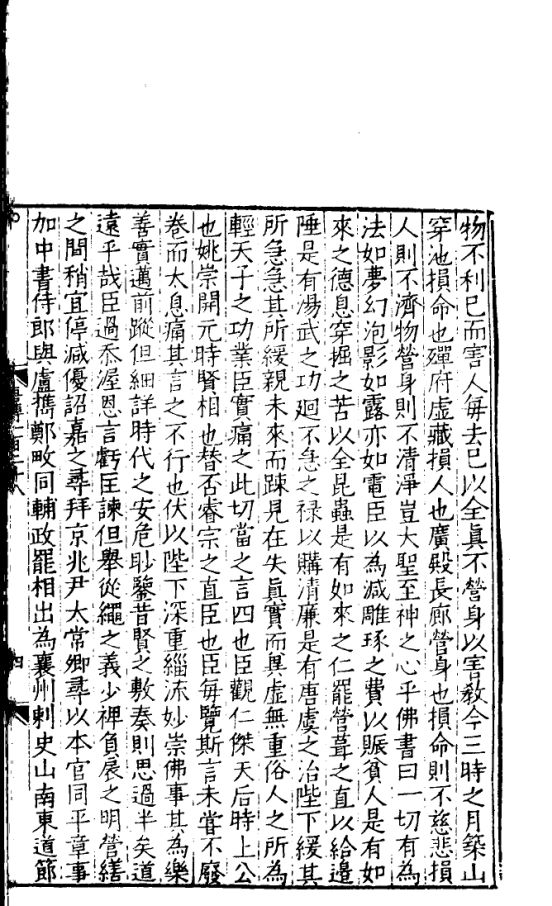 物不利巳而害人毎去巳以全眞不營身以害敎今三時之月築山
穿池損命也殫府虚藏損人也廣殿長廊營身也損命則不慈悲損
人則不濟物營身則不清淨豈大聖至神之心乎佛書曰一切有為
法如夢幻泡影如露亦如電臣以為减雕琢之費以賑貧人是有如
來之德息穿掘之苦以全昆蟲是有如來之仁罷營葺之直以給邊
陲是有湯武之功廻不急之禄以購清廉是有唐虞之治陛下緩其
所急急其所緩親未來而踈見在失眞實而兾虚無重俗人之所為
輕天子之功業臣實痛之此切當之言四也臣觀仁傑天后時上公
也姚崇開元時賢相也替否睿宗之直臣也臣毎覽斯言未甞不廢
卷而太息痛其言之不行也伏以陛下深重緇流妙崇佛事其為樂
善實邁前蹤但細詳時代之安危眇鑒昔賢之敷奏則思過半矣道
遠乎哉臣過忝渥恩言虧匡諫但舉從繩之義少裨負扆之明營繕
之間稍宜停减優詔嘉之尋拜京兆尹太常卿尋以本官同平章事
加中書侍郎與盧攜鄭畋同輔政罷相出為襄州刺史山南東道節
四